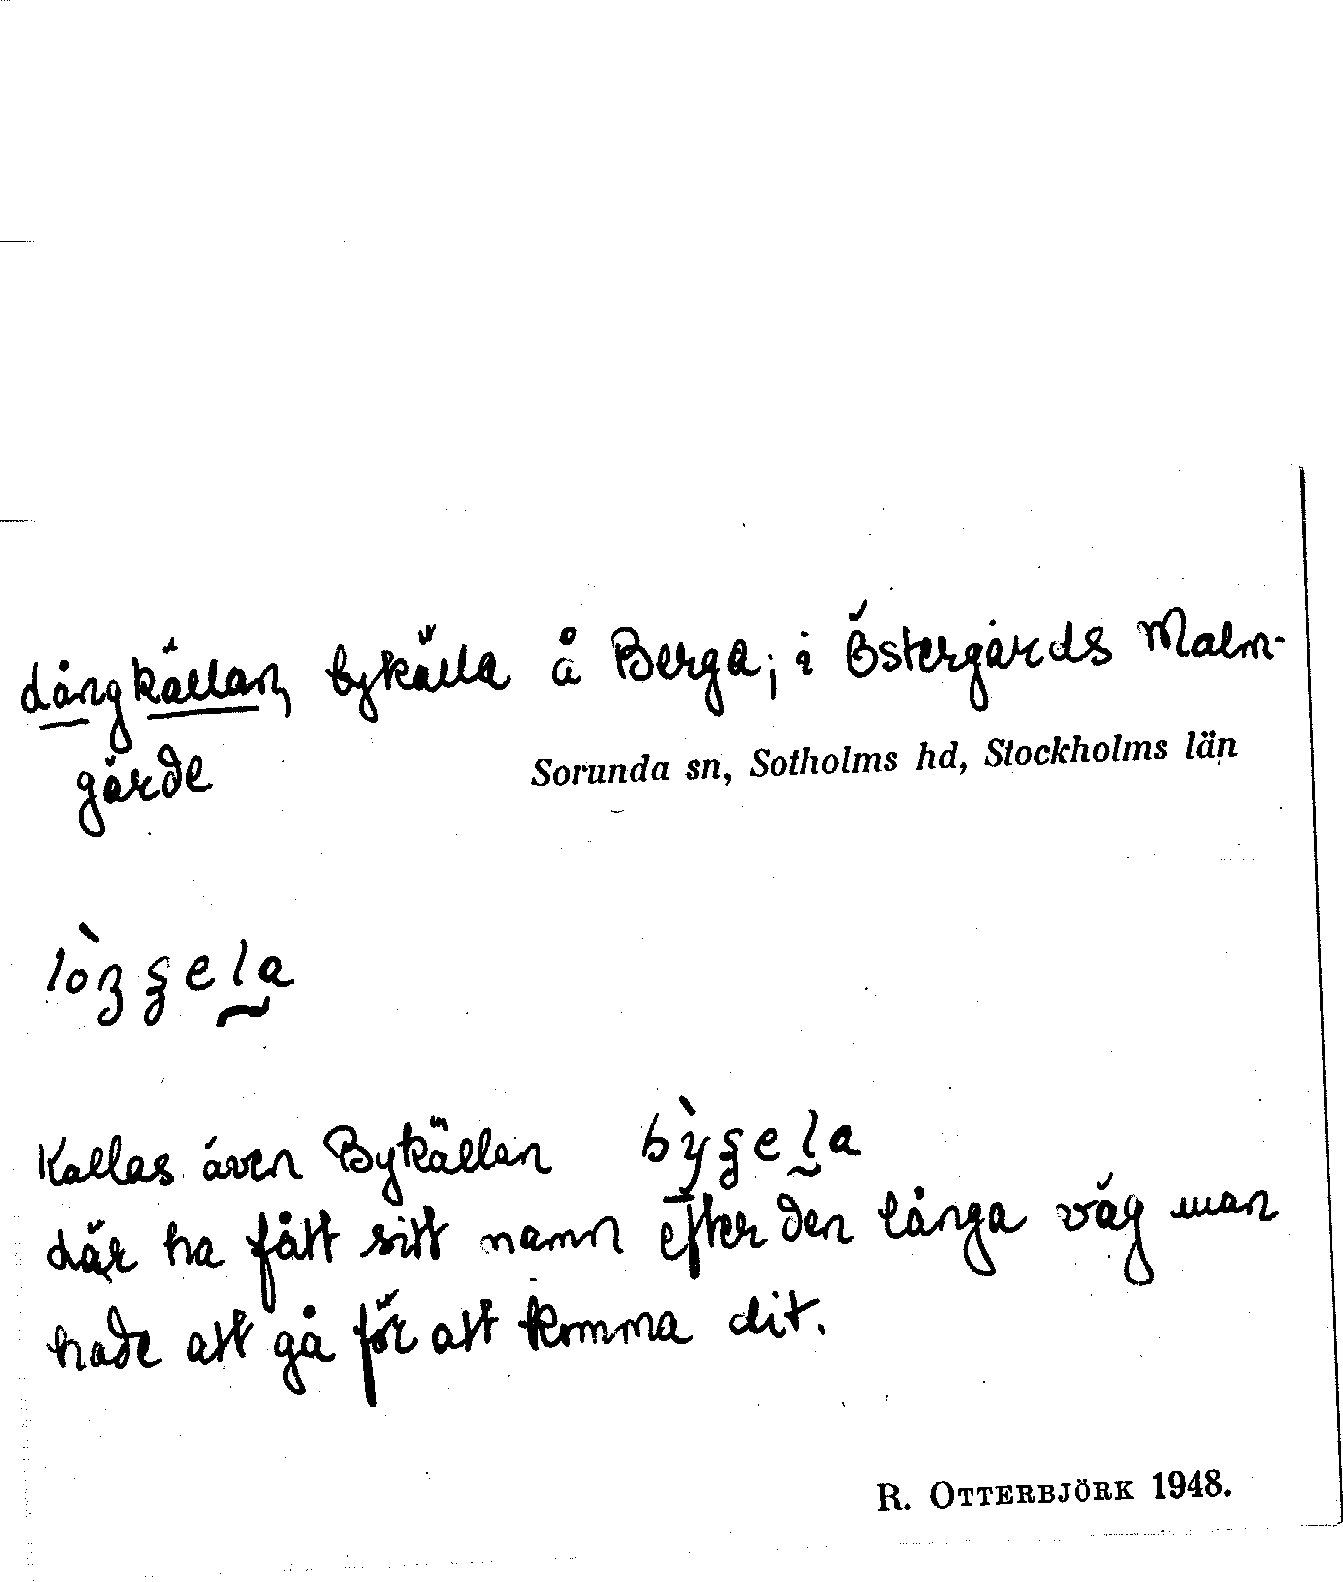 Långkällan, bykälla å Berga; i Östergårds Malm-
gärde
Sorunda sn, Sotholms hd, Stockholms län
Kallas även Bykällan
Lär ha fått sitt namn efter den långa väg man
hade att gå för att komma dit.
R. OTTERBJÖRK 1948.